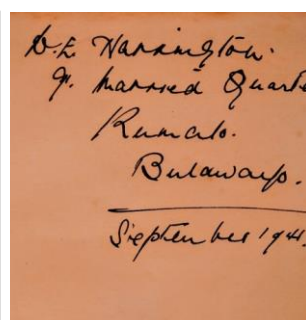 D.E Harrington.
9. Married Quarte
Kumalo.
Bulawayo.
September 1941.